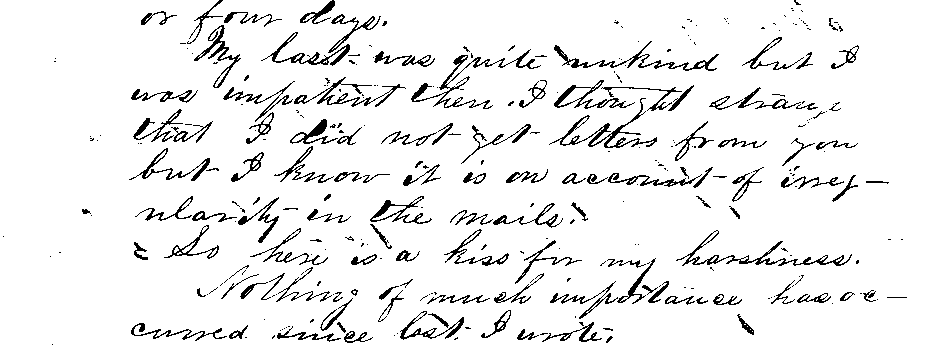 or four days.
My last was quite unkind but I
was impatient then. I thought strange
that I did not get letters from you
but I know it is on account of irreg-
ularity in the mails.
So here is a kiss for my harshness.
Nothing of much importance has oc-
curred since last I wrote.